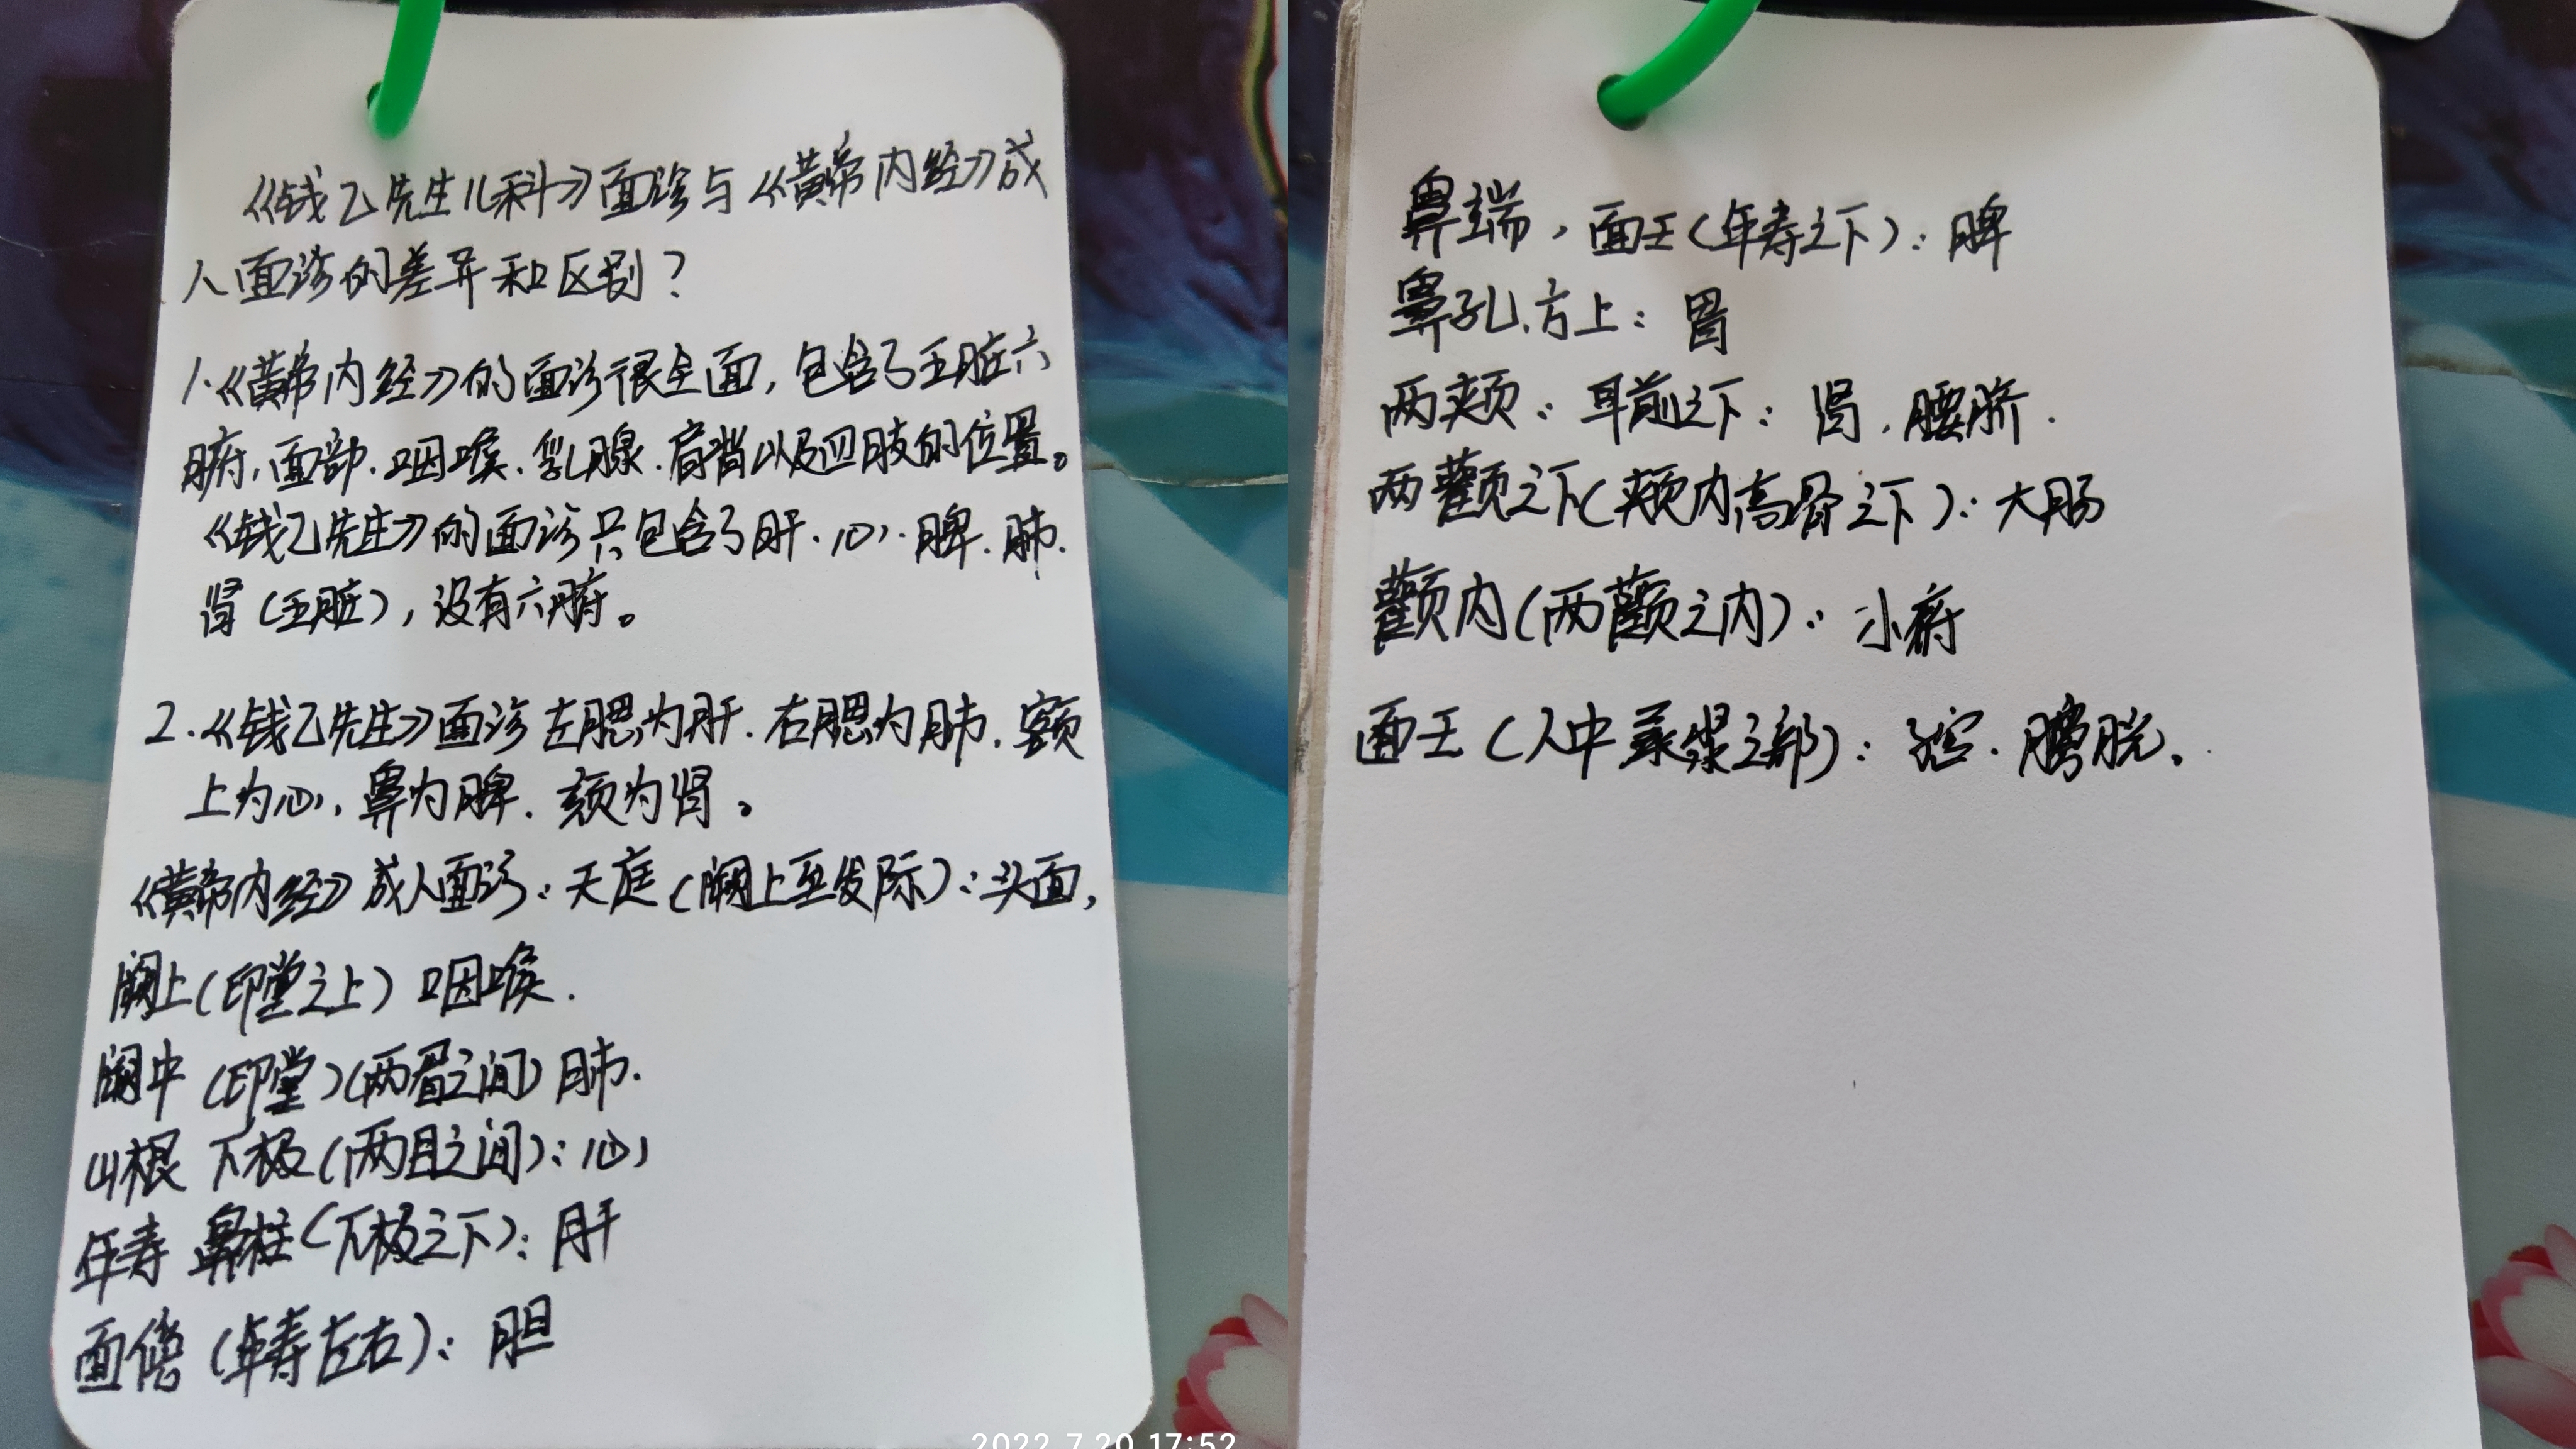 《钱乙先生儿科》面诊与《黄帝内经》成
人面诊的差异和区别?
1.《黄帝内经》的面诊很全面,包含了五脏六
腑、面部、咽喉、乳腺、肩背以及四肢的位置。
《钱乙先生》的面诊只包含了肝、心、脾、肺、
肾(五脏),没有六腑。
2.《钱乙先生》面诊左腮为肝、右腮为肺、额
上为心、鼻为脾、颏为肾。
《黄帝内经》成人面诊:天庭(阙上至发际):头面,
阙上(印堂之上)咽喉.
阙中(印堂)(两眉之间)肺.
山根 下极(两目之间):心
年寿 鼻柱(下极之下):肝
面傍(年寿左右):胆
鼻端,面王(年寿之下):脾
鼻孔、方上:胃
两颊:耳前之下:肾、腰脐.
两颧之下(颊内高骨之下):大肠
颧内(两颧之内):小府
面王(人中承浆之部):膀胱.
2022.7.20 17:52